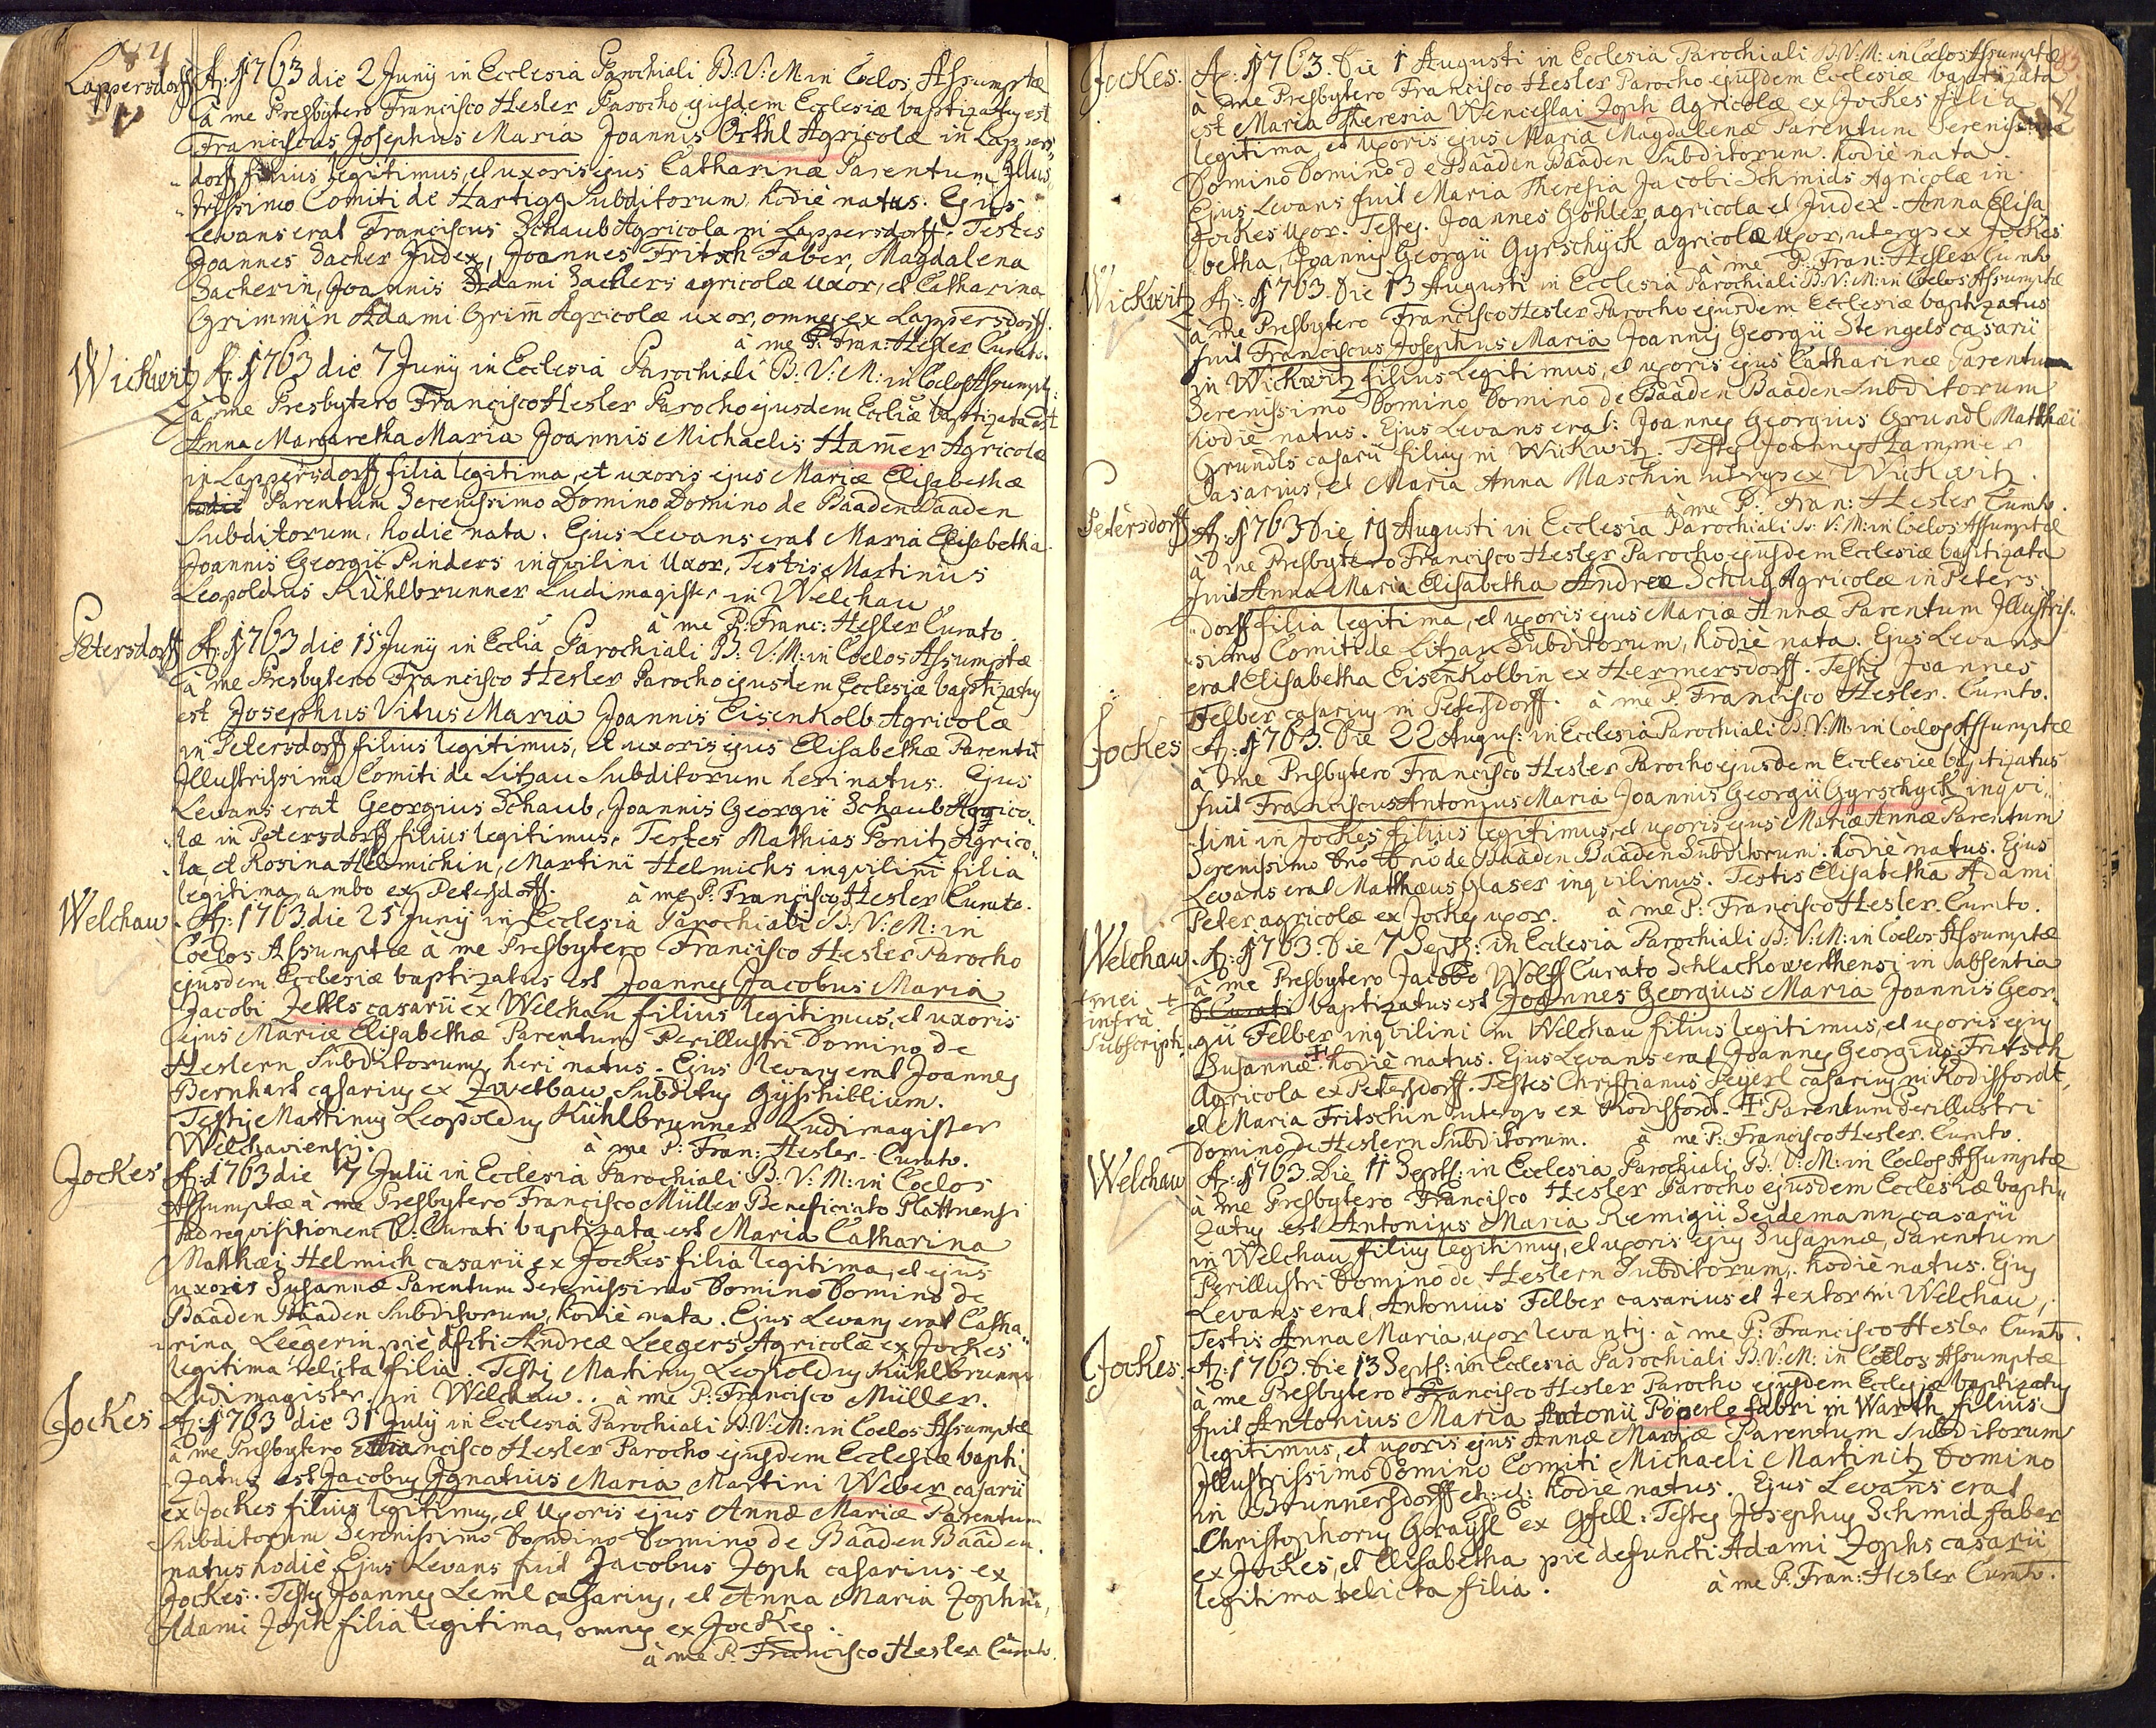 84
Lappersdorff A: 1763 die 2 Junÿ in Ecclesia Parochiali B: V: M in Coelos Assumptæ
à me Presbÿtero Francisco Hesler Parocho ejusdem Ecclesiæ baptizatus est
Franciscus Josephus Maria Joannis Örthl Agricolæ in Lappers„
„dorff filius legitimus, et uxoris ejus Catharinæ Parentum Illus„
„trissimo Comiti de Hartigg Subditorum hodiè natus. Ejus
Levans erat Franciscus Schaub Agricola in Lappersdorff. Testes
Joannes Dacher Judex, Joannes Fritsch Faber, Magdalena
Sacherin, Joannis Adami Sachers agricolæ uxor, et Catharina
Grimmin Adami Grim̄ Agricolæ uxor, omnes ex Lappersdorff.
à me P. Fran: Hesler Curato.
Wickwitz A: 1763 die 7 Junÿ in Ecclesia Parochiali B: V: M: in Coelos Assumpt:
à me Presbytero Francisco Hesler Parocho ejusdem Eccliæ baptizata est
Anna Margaretha Maria Joannis Michaelis Ham̄er Agricolæ
in Lappersdorff filia legitima, et uxoris ejus Mariæ Elisabethæ
hodiè Parentum Serenissimo Domino Domino de Baaden Baaden
Subditorum, hodie nata. Ejus Levans erat Maria Elisabetha
Joannis Georgii Pinders inqvilini Uxor, Testis Martinus
Leopoldus Kühlbrunner Ludimagister in Welchau
à me P: Franc: Hesler Curato.
Petersdorff A: 1763 die 15 Junÿ in Ecclia Parochiali B: V: M: in Coelos Assumptæ
à me Presbytero Francisco Hesler Parocho ejusdem Ecclesiæ baptizatus
est Josephus Vitus Maria Joannis Eisenkolb Agricolæ
in Petersdorff filius legitimus, et uxoris ejus Elisabethæ Parentū
Illustrissima Comiti de Litzau Subditorum heri natus. Ejus
Levans erat Georgius Schaub, Joannis Georgii Schaub Agrico„
„læ in Petersdorff filius legitimus. Testes Mathias Ponitz Agrico„
„la, et Rosina Helmichin, Martini Helmichs inqvilini filia
legitima, ambo ex Petersdorff. à me P: Francisco Hesler Curato.
Welchau. A: 1763 die 25 Junÿ in Ecclesia Parochiali B: V: M: in
Coelos Assumptæ à me Presbytero Francisco Hesler Parocho
ejusdem Ecclesiæ baptizatus est Joannes Jacobus Maria
Jacobi Zettls casarii ex Welchau filius legitimus, et uxoris
ejus Mariæ Elisabethæ Parentum Perillustri Domino de
Heslern Subditorum, heri natus. Ejus levans erat Joannes
Bernhart casarius ex Zwetbau Subditus
Testis Martinus Leopoldus Kühlbrunner Ludimagister
Welchaviensis. à me P: Fran: Hesler Curato.
Jockes A: 1763 die 7 Julii in Ecclesia Parochiali B: V: M: in Coelos
Assumptæ à me Presbytero Francisco Müller Beneficiato Plattnensi
ad reqvisitionem D: Curati baptizata est Maria Catharina
Matthæi Helmich casarii ex Jockes filia legitima, et ejus
uxoris Susannæ Parentum Serenissimo Domino Domino de
Baaden Baaden Subditorum, hodiè nata. Ejus Levans erat Catha„
„rina Leegerin piè dfcti Andreæ Leegers Agricolæ ex Jockes
legitima relicta filia. Testis Martinus Leopoldus Kühlbrunner
Ludimagister in Welchau. à me P: Francisco Müller.
Jockes A: 1763 die 31 Julÿ in Ecclesia Parochiali B: V: M: in Coelos Assumptæ
à me Presbytero Francisco Hesler Parocho ejusdem Ecclesiæ bapti„
„zatus est Jacobus Ignatius Maria Martini Weber casarii
ex Jockes filius legitimus, et Uxoris ejus Annæ Mariæ Parentum
Subditorum Serenissimo Domino Domino de Baaden Baaden.
natus hodiè. Ejus Levans fuit Jacobus Zoph casarius ex
Jockes. Testes Joannes Leml casarius, et Anna Maria Zophin,
Adami Zoph filia legitima, omnes ex Jockes.
à me P: Francisco Hesler Curato.
Jockes. A: 1763. Die 1 Augusti in Ecclesia Parochiali B: V: M: in Coelos Assumptæ
à me Presbytero Francisco Hesler Parocho ejusdem Ecclesiæ baptizata
est Maria Theresia Wenceslai Zoph Agricolæ ex Jockes filia
legitima, et Uxoris ejus Mariæ Magdalenæ Parentum Serenissimo
Domino Domino de Baaden Baaden Subditorum. hodiè nata.
Ejus Levans fuit Maria Theresia Jacobi Schmids Agricolæ in
Jockes uxor. Testes. Joannes Göhler agricola et Judex. Anna Elisa
betha, Joannis Georgii Gyrschyck agricolæ Uxor, uterqve ex Jockes
à me P: Fran: Hesler Curato
Wickwitz A: 1763. Die 13 Augusti in Ecclesia Parochiali B: V: M: in Coelos Assumptæ
à me Presbytero Francisco Hesler Parocho ejusdem Ecclesiæ baptizatus
fuit Franciscus Josephus Maria Joannis Georgii Stengels casarii
in Wickwitz filius Legitimus, et uxoris ejus Catharinæ Parentum
Serenissimo Domino Domino de Baaden Baaden Subditorum
hodiè natus. Ejus Levans erat: Joannes Georgius Grundl Matthæi
Grundls casarii filius in Wickwitz. Testes Joannes Hammer
Casarius, et Maria Anna Maschin uterqve ex Wickwitz.
à me P: Fran: Hesler Curato.
Petersdorff A: 1763 Die 19 Augusti in Ecclesia Parochiali B: V: M: in Coelos Assumptæ
à me Presbytero Francisco Hesler Parocho ejusdem Ecclesiæ baptizata
fuit Anna Maria Elisabetha Andreæ Schug Agricolæ in Peters„
„dorff filia legitima, et uxoris ejus Mariæ Annæ Parentum Illustris„
„simo Comiti de Litzau Subditorum, hodiè nata. Ejus Levans
erat Elisabetha Eisenkolbin ex Hermersdorff. Testis Joannes
Felber casarius in Petersdorff. à me P. Francisco Hesler. Curato.
Jockes A: 1763. Die 22 August: in Ecclesia Parochiali B: V: M: in Coelos Assumptæ
à me Presbytero Francisco Hesler Parocho ejusdem Ecclesiæ baptizatus
fuit Franciscus Antonius Maria Joannis Georgii Gyrschyck inqvi„
„lini in Jockes filius legitimus, et uxoris ejus Mariæ Annæ Parentum
Serenissimo Dno Dno de Baaden Baaden Subditorum. hodiè natus. Ejus
Levans erat Matthæus Glaser inqvilinus. Testis Elisabetha Adami
Peter agricolæ ex Jockes uxor. à me P: Francisco Hesler. Curato.
Welchau. A: 1763. Die 7 Sept: in Ecclesia Parochiali B: V: M: in Coelos Assumptæ
à me Presbytero Jacobo Wolff Curato Schlackowerthensi in absentia
+ mei infrà Subscripti. + D: Curati baptizatus est Joannes Georgius Maria Joannis Geor„
„gii Felber inqvilini in Welchau filius legitimus, et uxoris ejus
Susannæ. ‡ hodiè natus. Ejus Levans erat Joannes Georgius Fritsch
Agricola ex Petersdorff. Testes Christianus Peÿerl casarius in Rodisfordt,
et Maria Fritschin uterqve ex Rodisfort. ‡ Parentum Perillustri
Domino de Heslern Subditorum. à me P: Francisco Hesler. Curato.
Welchau A: 1763. Die 11 Sept: in Ecclesia Parochiali B: V: M: in Coelos Assumptæ
à me Presbytero Francisco Hesler Parocho ejusdem Ecclesiæ bapti„
zatus est Antonius Maria Remigii Seidemann casarii
in Welchau filius legitimus, et uxoris ejus Susannæ, Parentum
Perillustri Domino de Heslern Subditorum. hodiè natus. Ejus
Levans erat, Antonius Felber casarius et textor in Welchau,
Testis Anna Maria, uxor levantis. à me P: Francisco Hesler Curato.
Jockes. A: 1763. Die 13 Sept: in Ecclesia Parochiali B: V: M: in Coelos Assumptæ
à me Presbytero Francisco Hesler Parocho ejusdem Ecclesiæ baptizatus
fuit Antonius Maria Antonii Poperle fabri in Warth filius
legitimus, et uxoris ejus Annæ Mariæ Parentum Subditorum
Illustrissimo Domino Comiti Michaeli Martinitz Domino
in Brunnersdorff et: et: hodie natus. Ejus Levans erat
Christophorus ex Gfell: Testes Josephus Schmid faber
ex Jockes, et Elisabetha piè defuncti Adami Zophs casarii
legitima relicta filia. à me P: Fran: Hesler Curato.